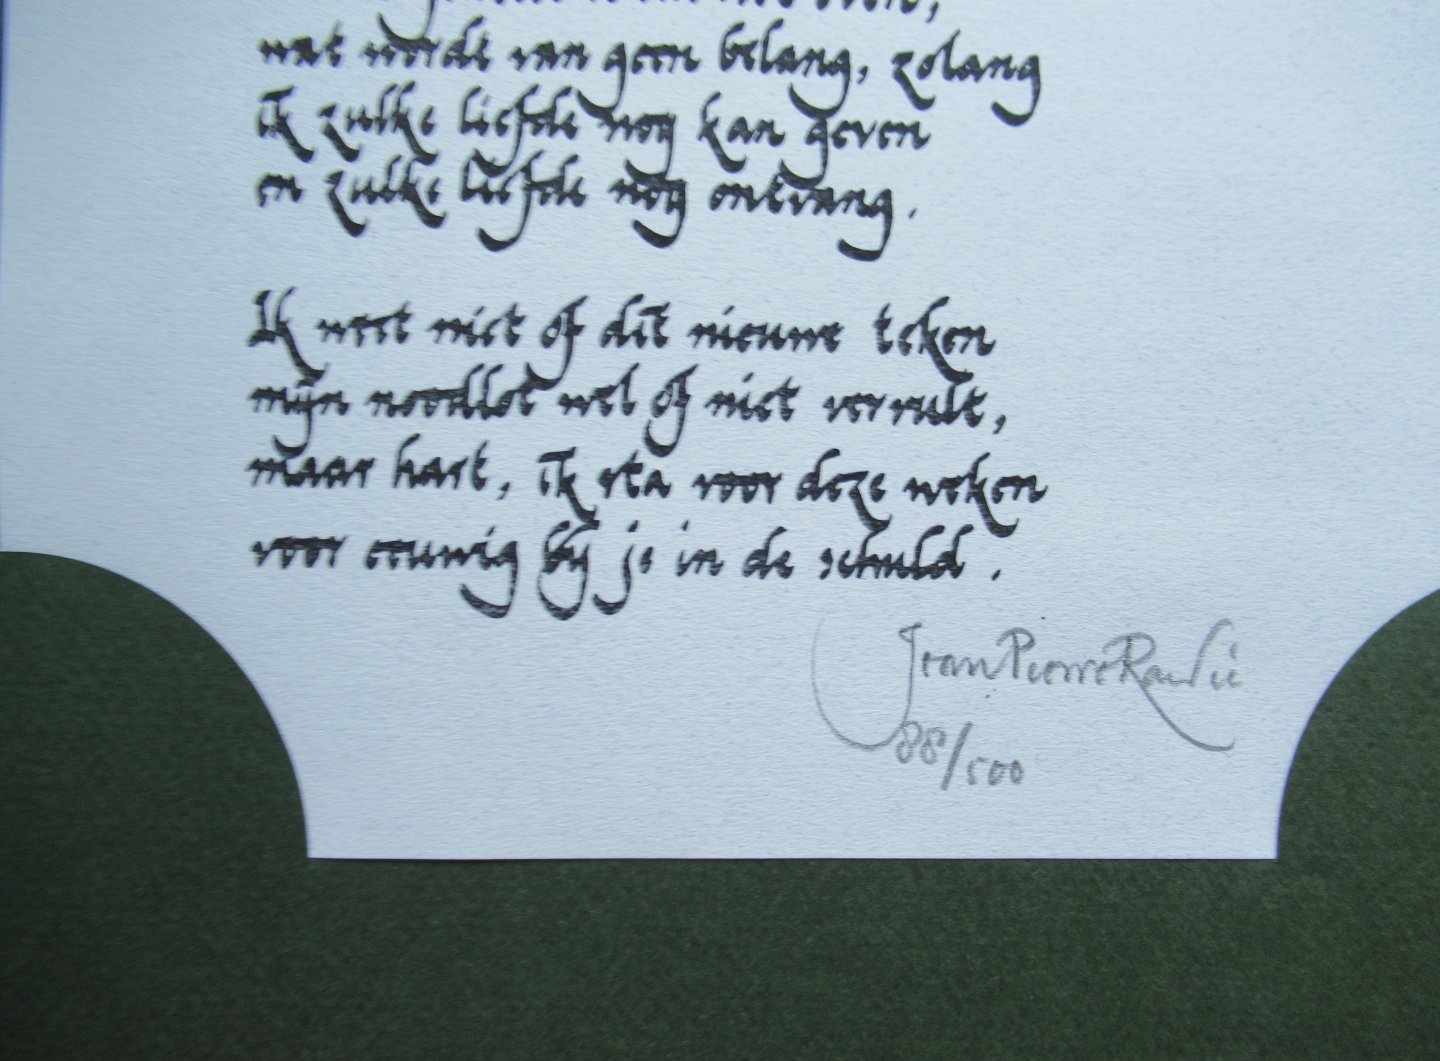 wat wordt van geen belang, zolang
ik zulke liefde nog kan geven
en zulke liefde nog ontvang.
Ik weet niet of dit nieuwe teken
mijn noodlot wel of niet vervult,
maar hart, ik sta voor deze weken
voor eeuwig bij je in de schuld.
Jean Pierre Rawie
88/500